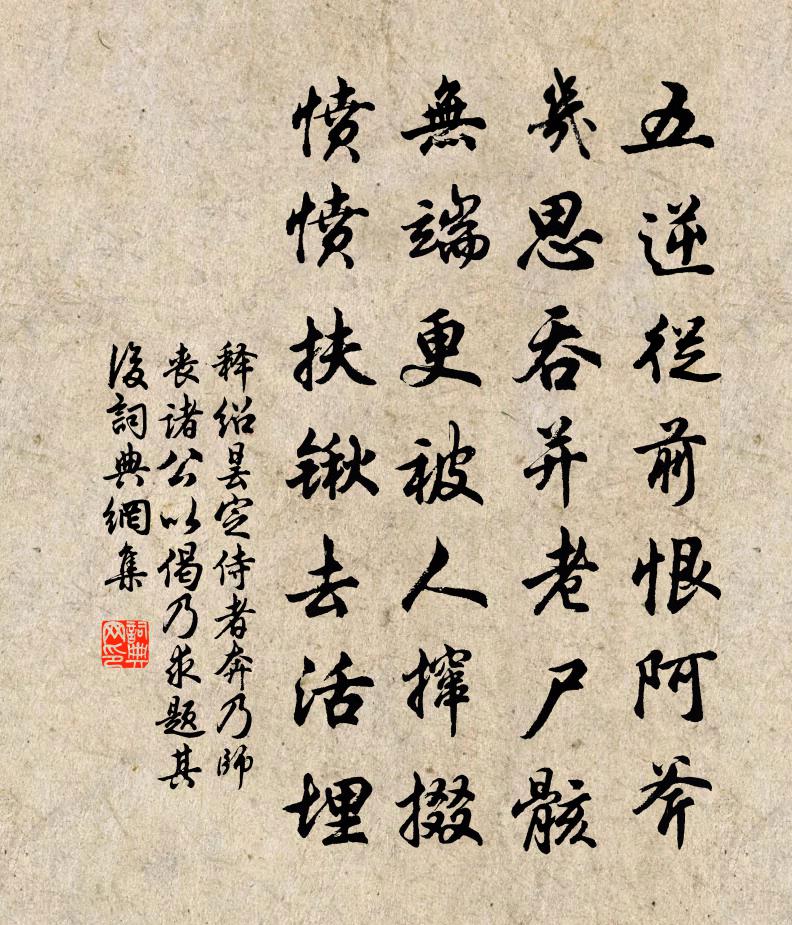 五逆從前恨阿斧
幾思吞并老尸骸
無端更被人撺掇
憤憤扶鍬去活埋
释绍昙定侍者奔乃師
丧诸公以偈乃求题其
後詞典網集
詞典网印